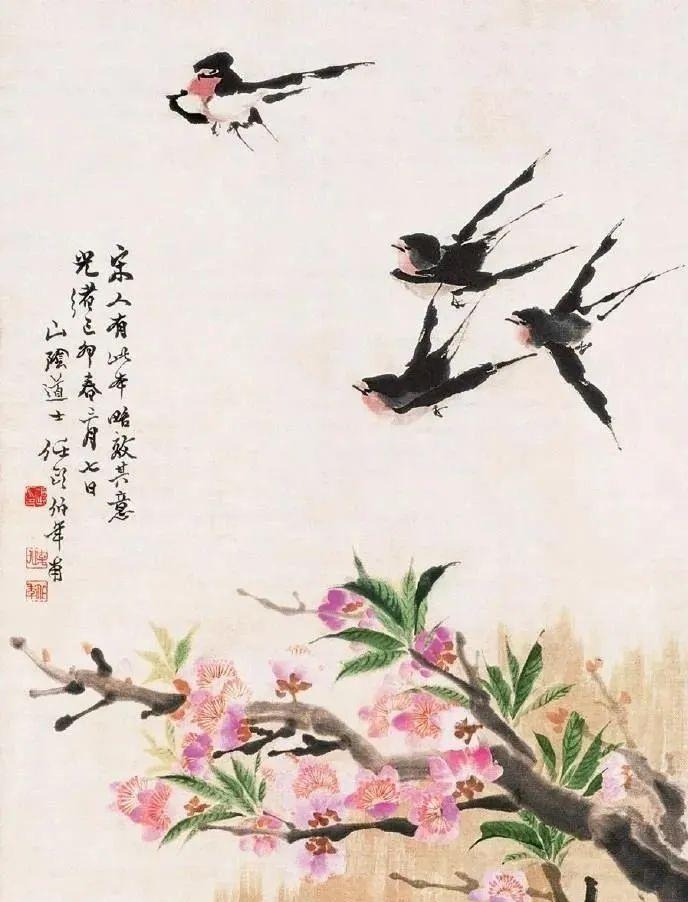 宋人有此本略效其意
光绪己卯春二月七日
山陰道士任頤伯年甫